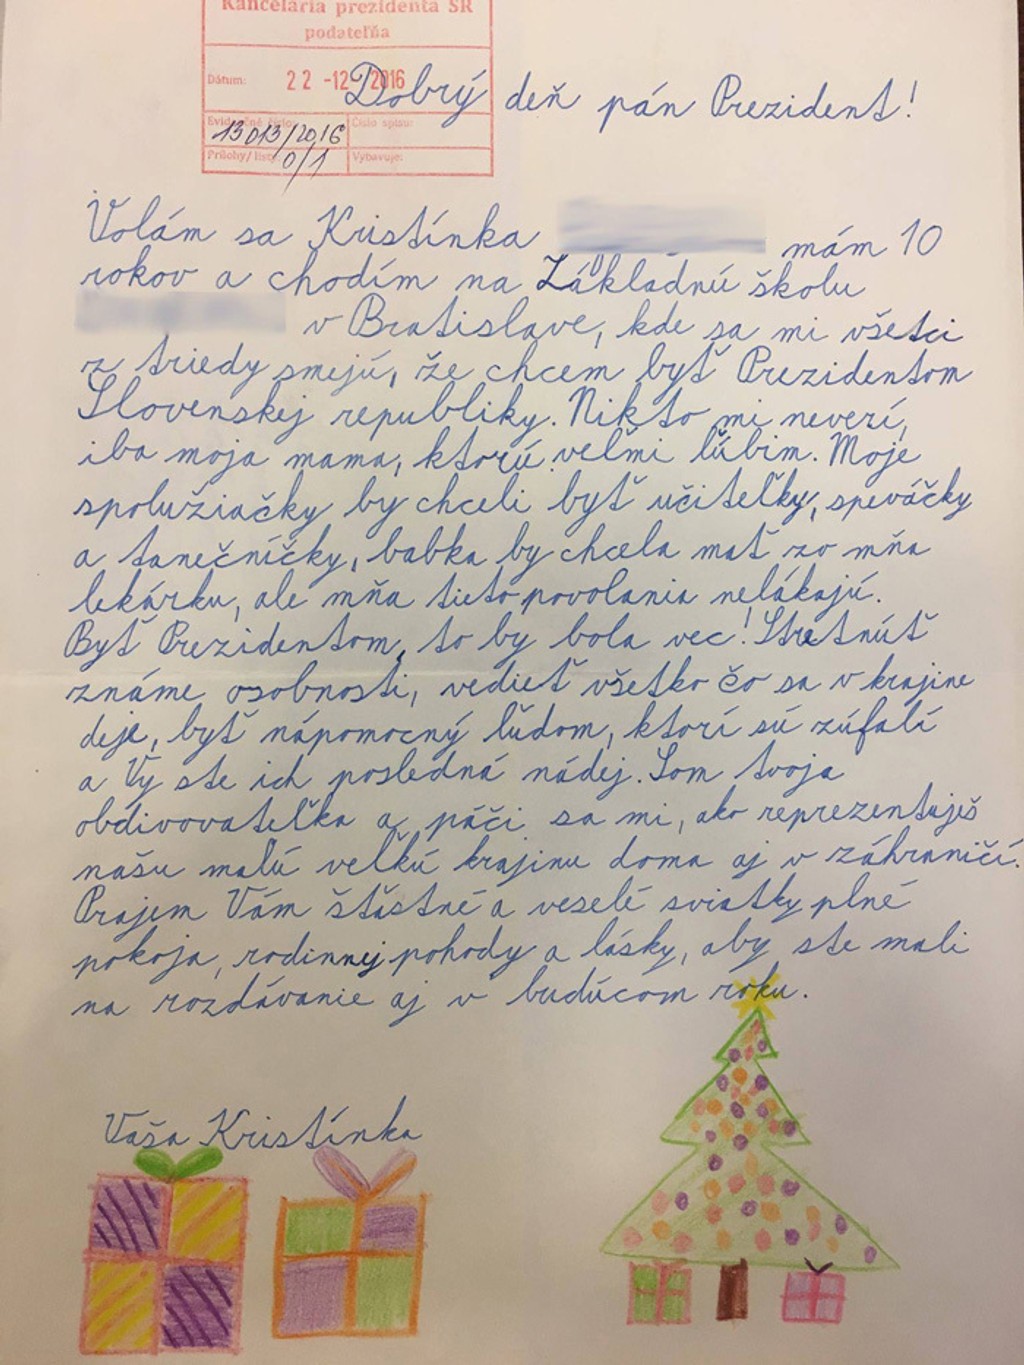 Kancelária prezidenta SR
podateľňa
Dátum: 22 -12- 2016
Dobrý deň pán Prezident!
Evidenčné číslo: Číslo spisu:
13013/2016
Prílohy/listy: 0/1 Vybavuje:
Volám sa Kristínka mám 10
rokov a chodím na Základnú školu
v Bratislave, kde sa mi všetci
z triedy smejú, že chcem byť Prezidentom
Slovenskej republiky. Nikto mi neverí,
iba moja mama, ktorú veľmi ľúbim. Moje
spolužiačky by chceli byť učiteľky, speváčky
a tanečníčky, babka by chcela mať zo mňa
lekárku, ale mňa tieto povolania nelákajú.
Byť Prezidentom, to by bola vec! Stretnúť
známe osobnosti, vedieť všetko čo sa v krajine
deje, byť nápomocný ľuďom, ktorí sú zúfalí
a Vy ste ich posledná nádej. Som tvoja
obdivovateľka a páči sa mi, ako reprezentuješ
našu malú veľkú krajinu doma aj v záhraničí.
Prajem Vám štástné a veselé sviatky plné
pokoja, rodinnej pohody a lásky, aby ste mali
na rozdávanie aj v budúcom roku.
Vaša Kristínka